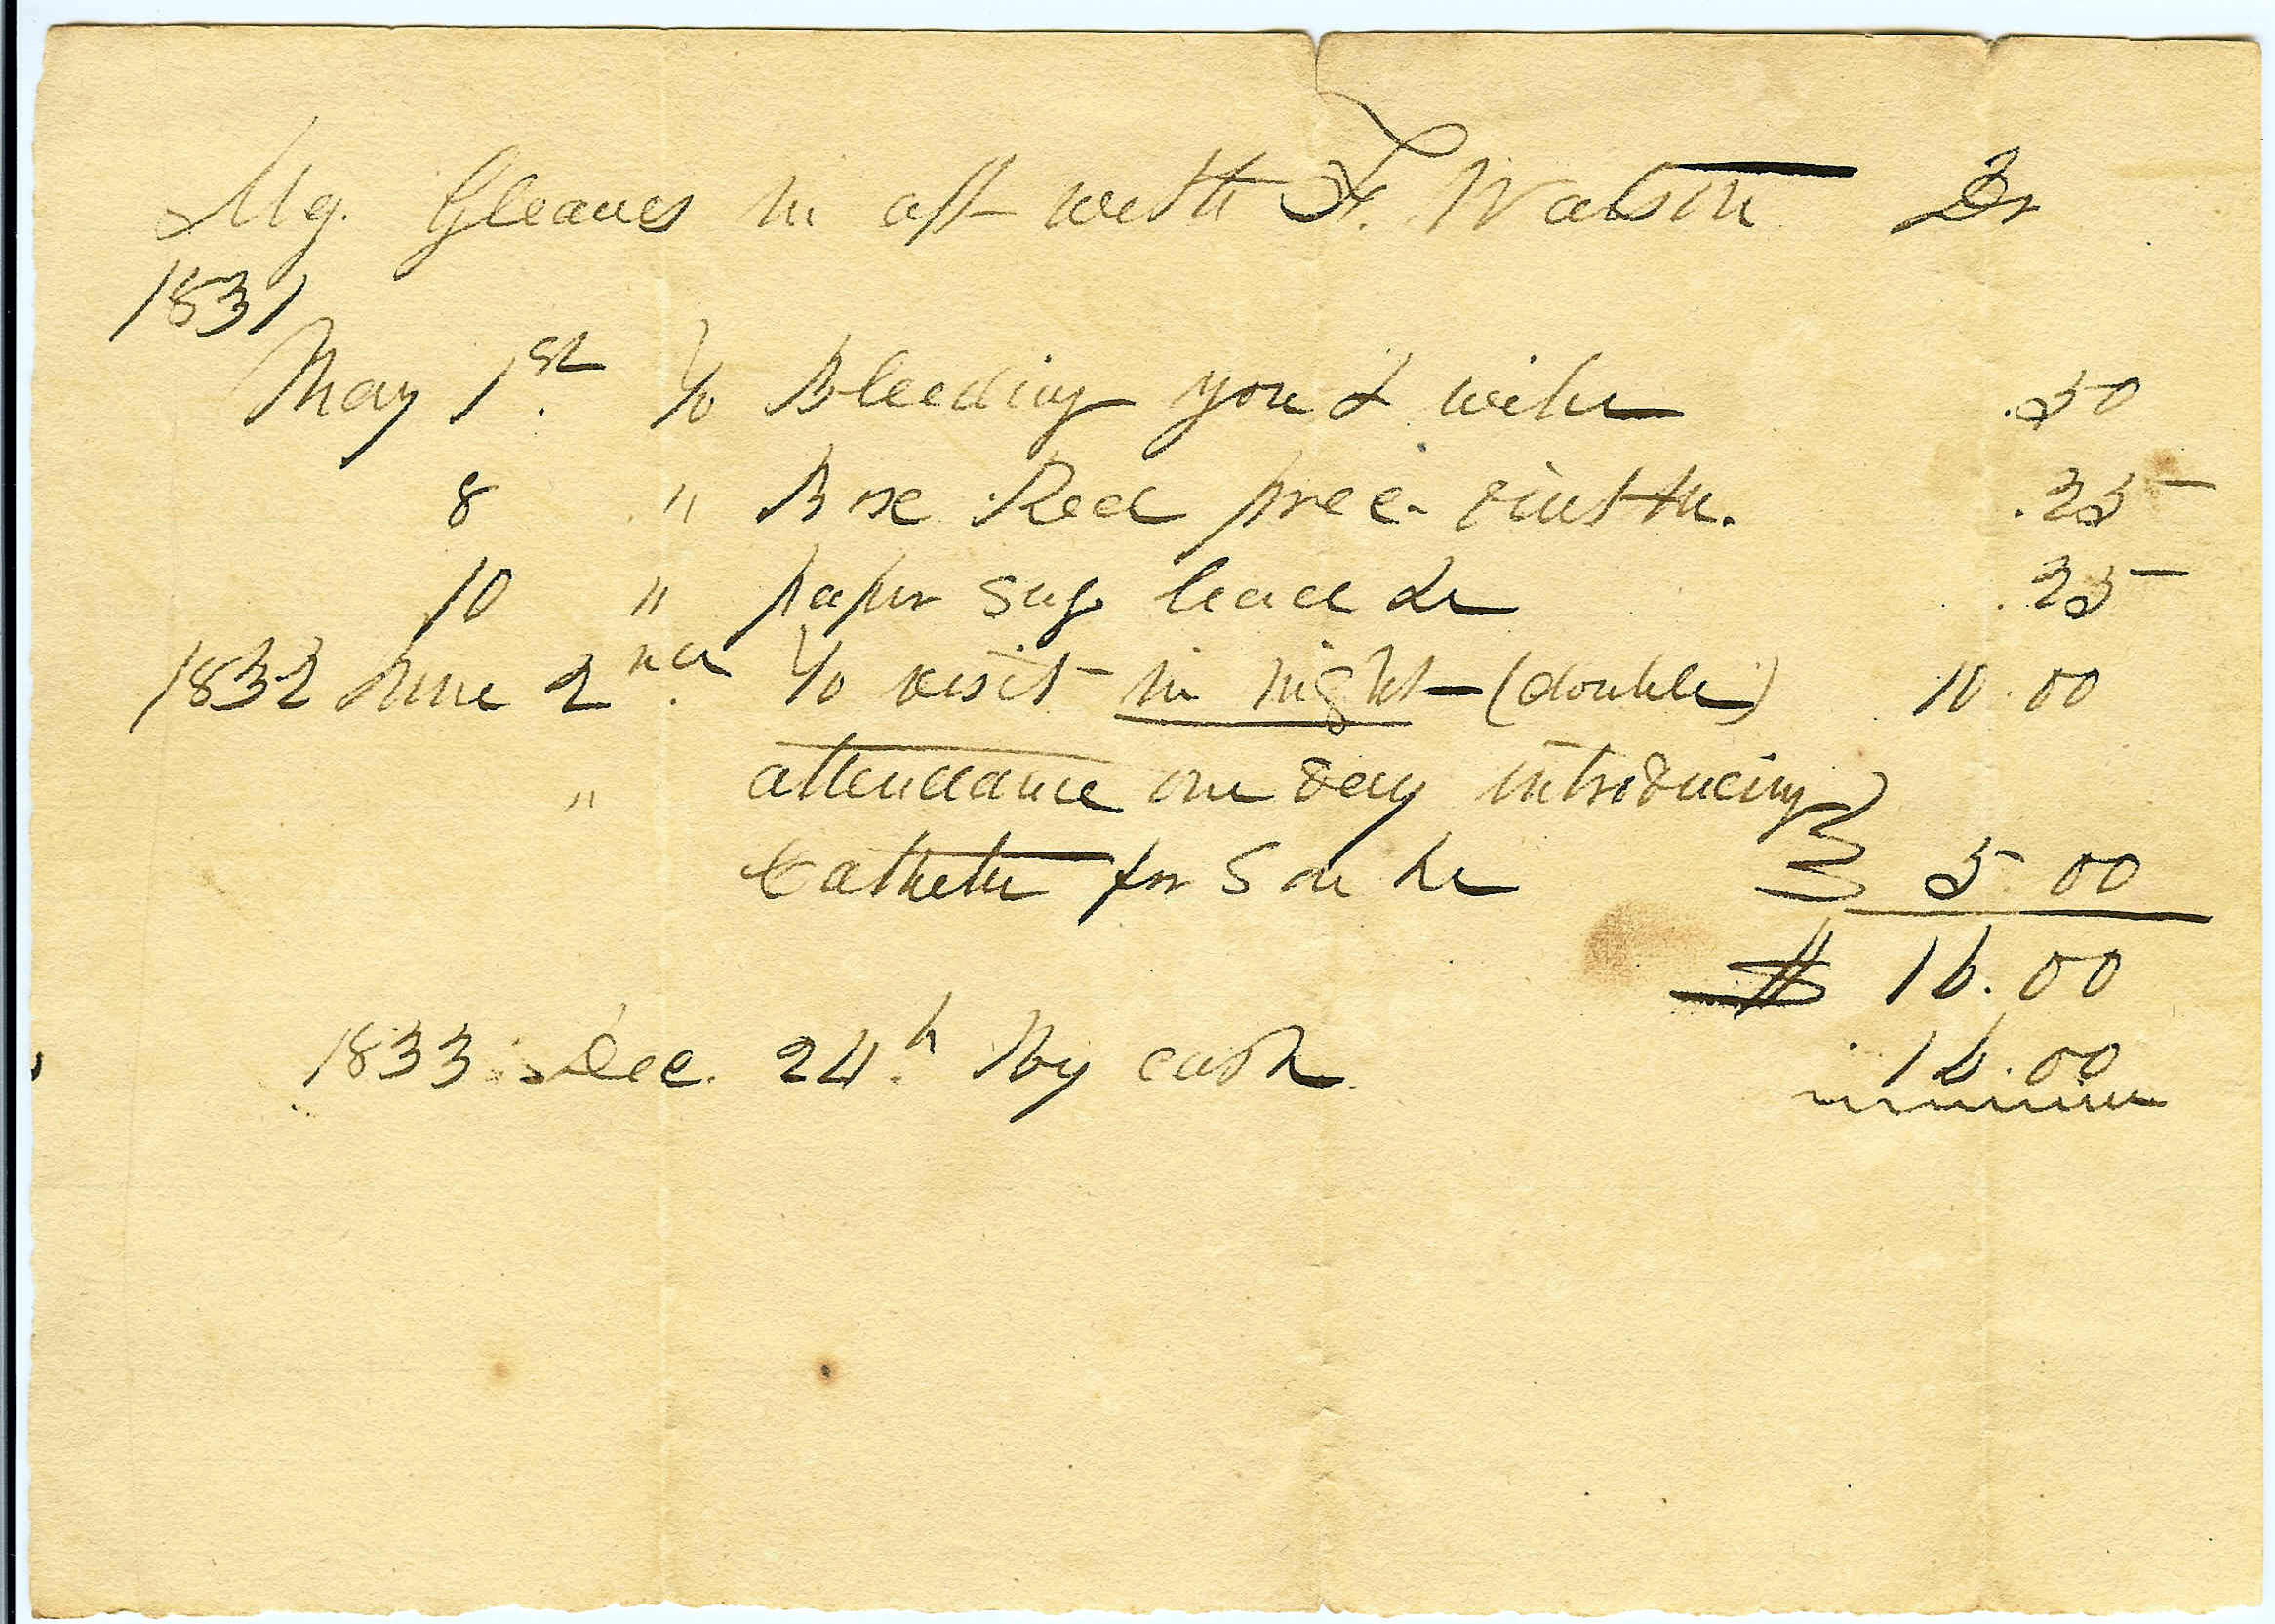 Mg. Gleaves in a/c with T. Watson Dr
1831
May 1st. To Bleeding you & wife .50
8 " Box Red prec. ointm. .25
10 " paper sug. lead &c .25
1832 June 2nd. To visit in night (double) 10.00
" attendance one day introducing
Catheter for Son &c 5.00
$ 16.00
1833 Dec. 24h. By cash 16.00